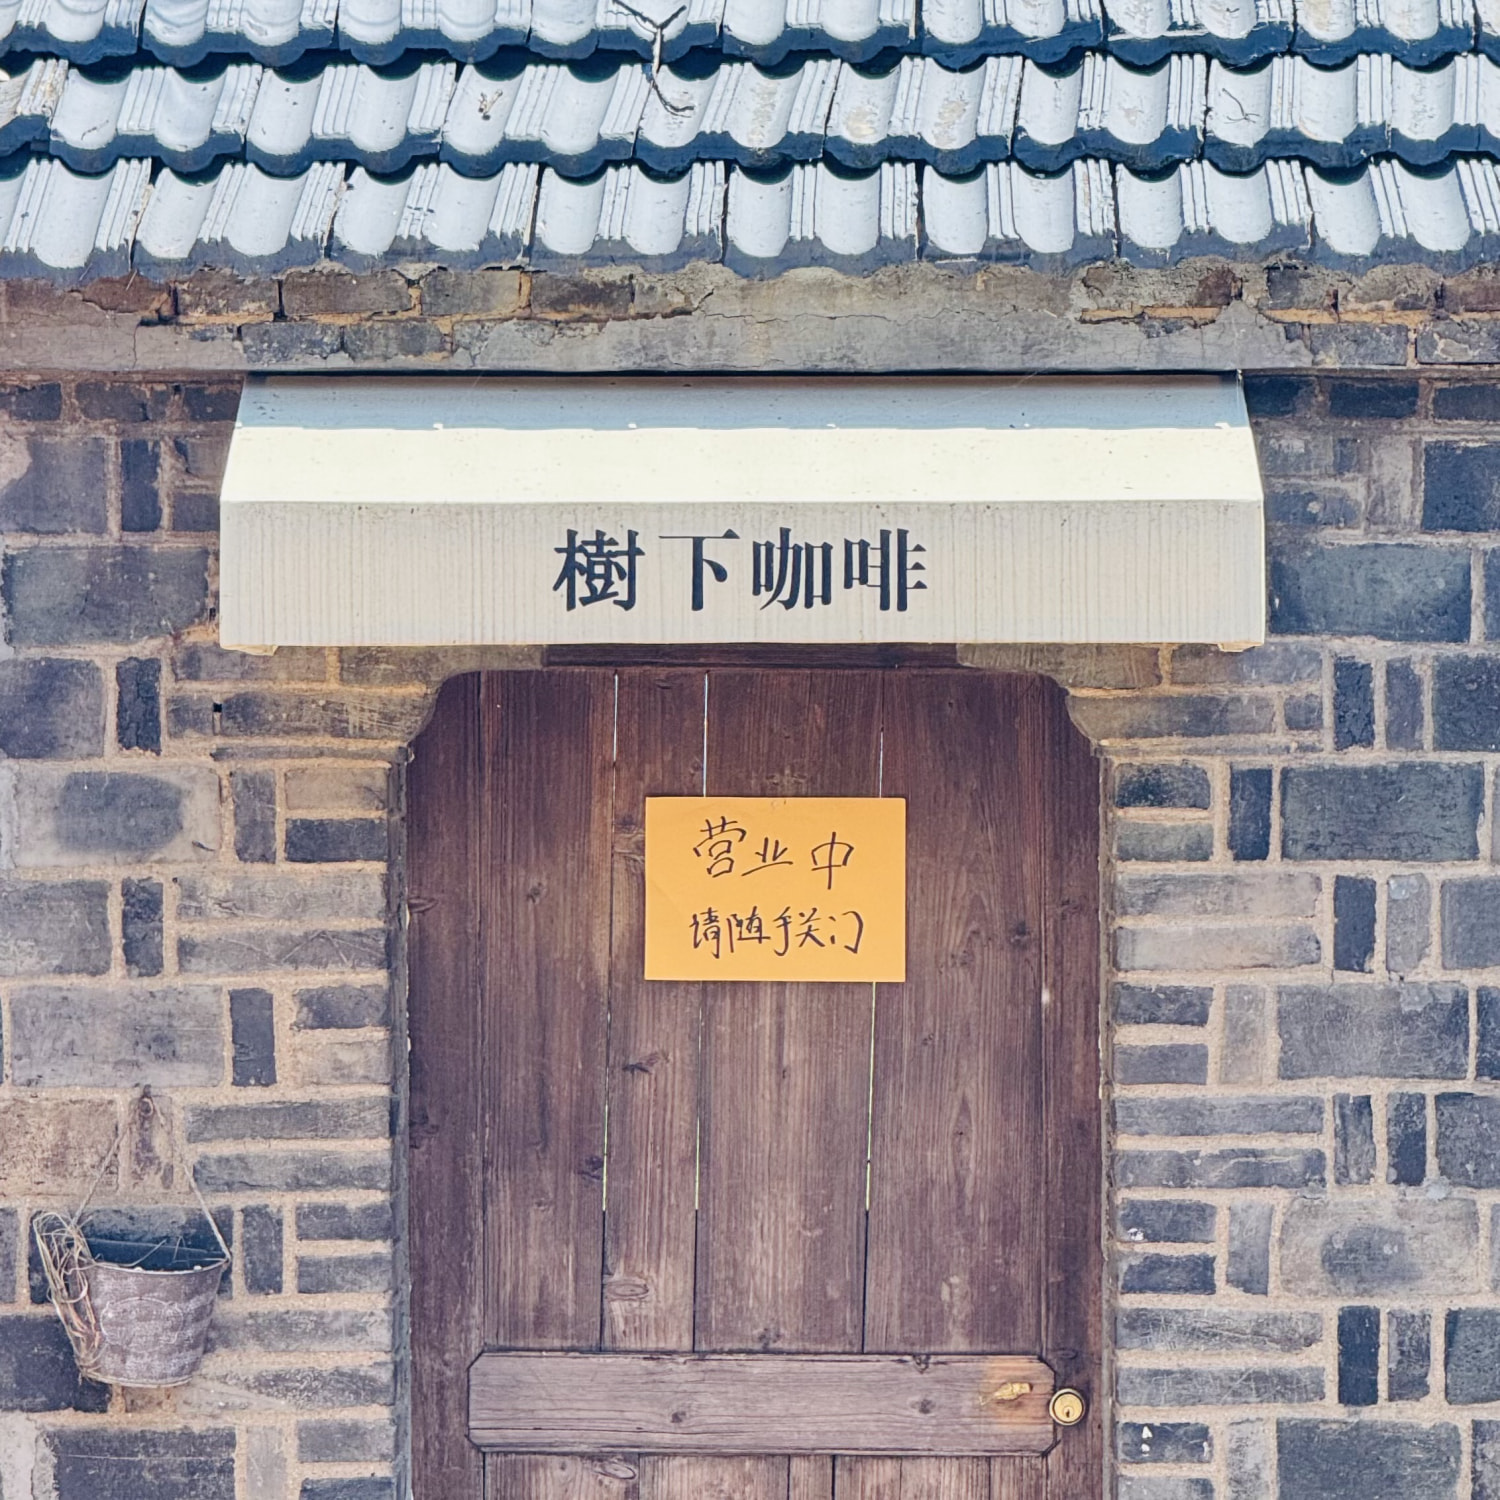 樹下咖啡
营业中
请随手关门